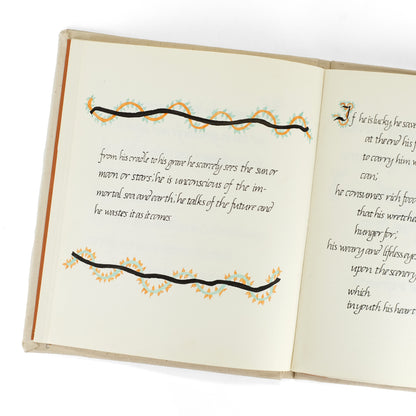 from his cradle to his grave he scarcely sees the sun or
moon or stars; he is unconscious of the im-
mortal sea and earth; he talks of the future and
he wastes it as it comes
If he is lucky, he
at the end his f
to carry him w
can;
he consumes rich foo
that his wretched
hunger for;
his weary and lifeless eye
upon the scenery
which
in youth his heart